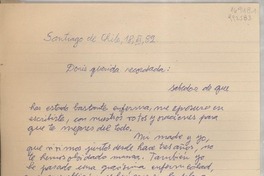 Santiago de Chile, 18, III, 52
Doris querida recordada:
sabedora de que
has estado bastante enferma, me apresuro en
escribirte, con nuestros votos y oraciones para
que te mejores del todo.
Mi madre y yo,
que vivimos juntos desde hace tres años, no
te hemos olvidado nunca. También yo
he pasado una gravísima enfermedad,